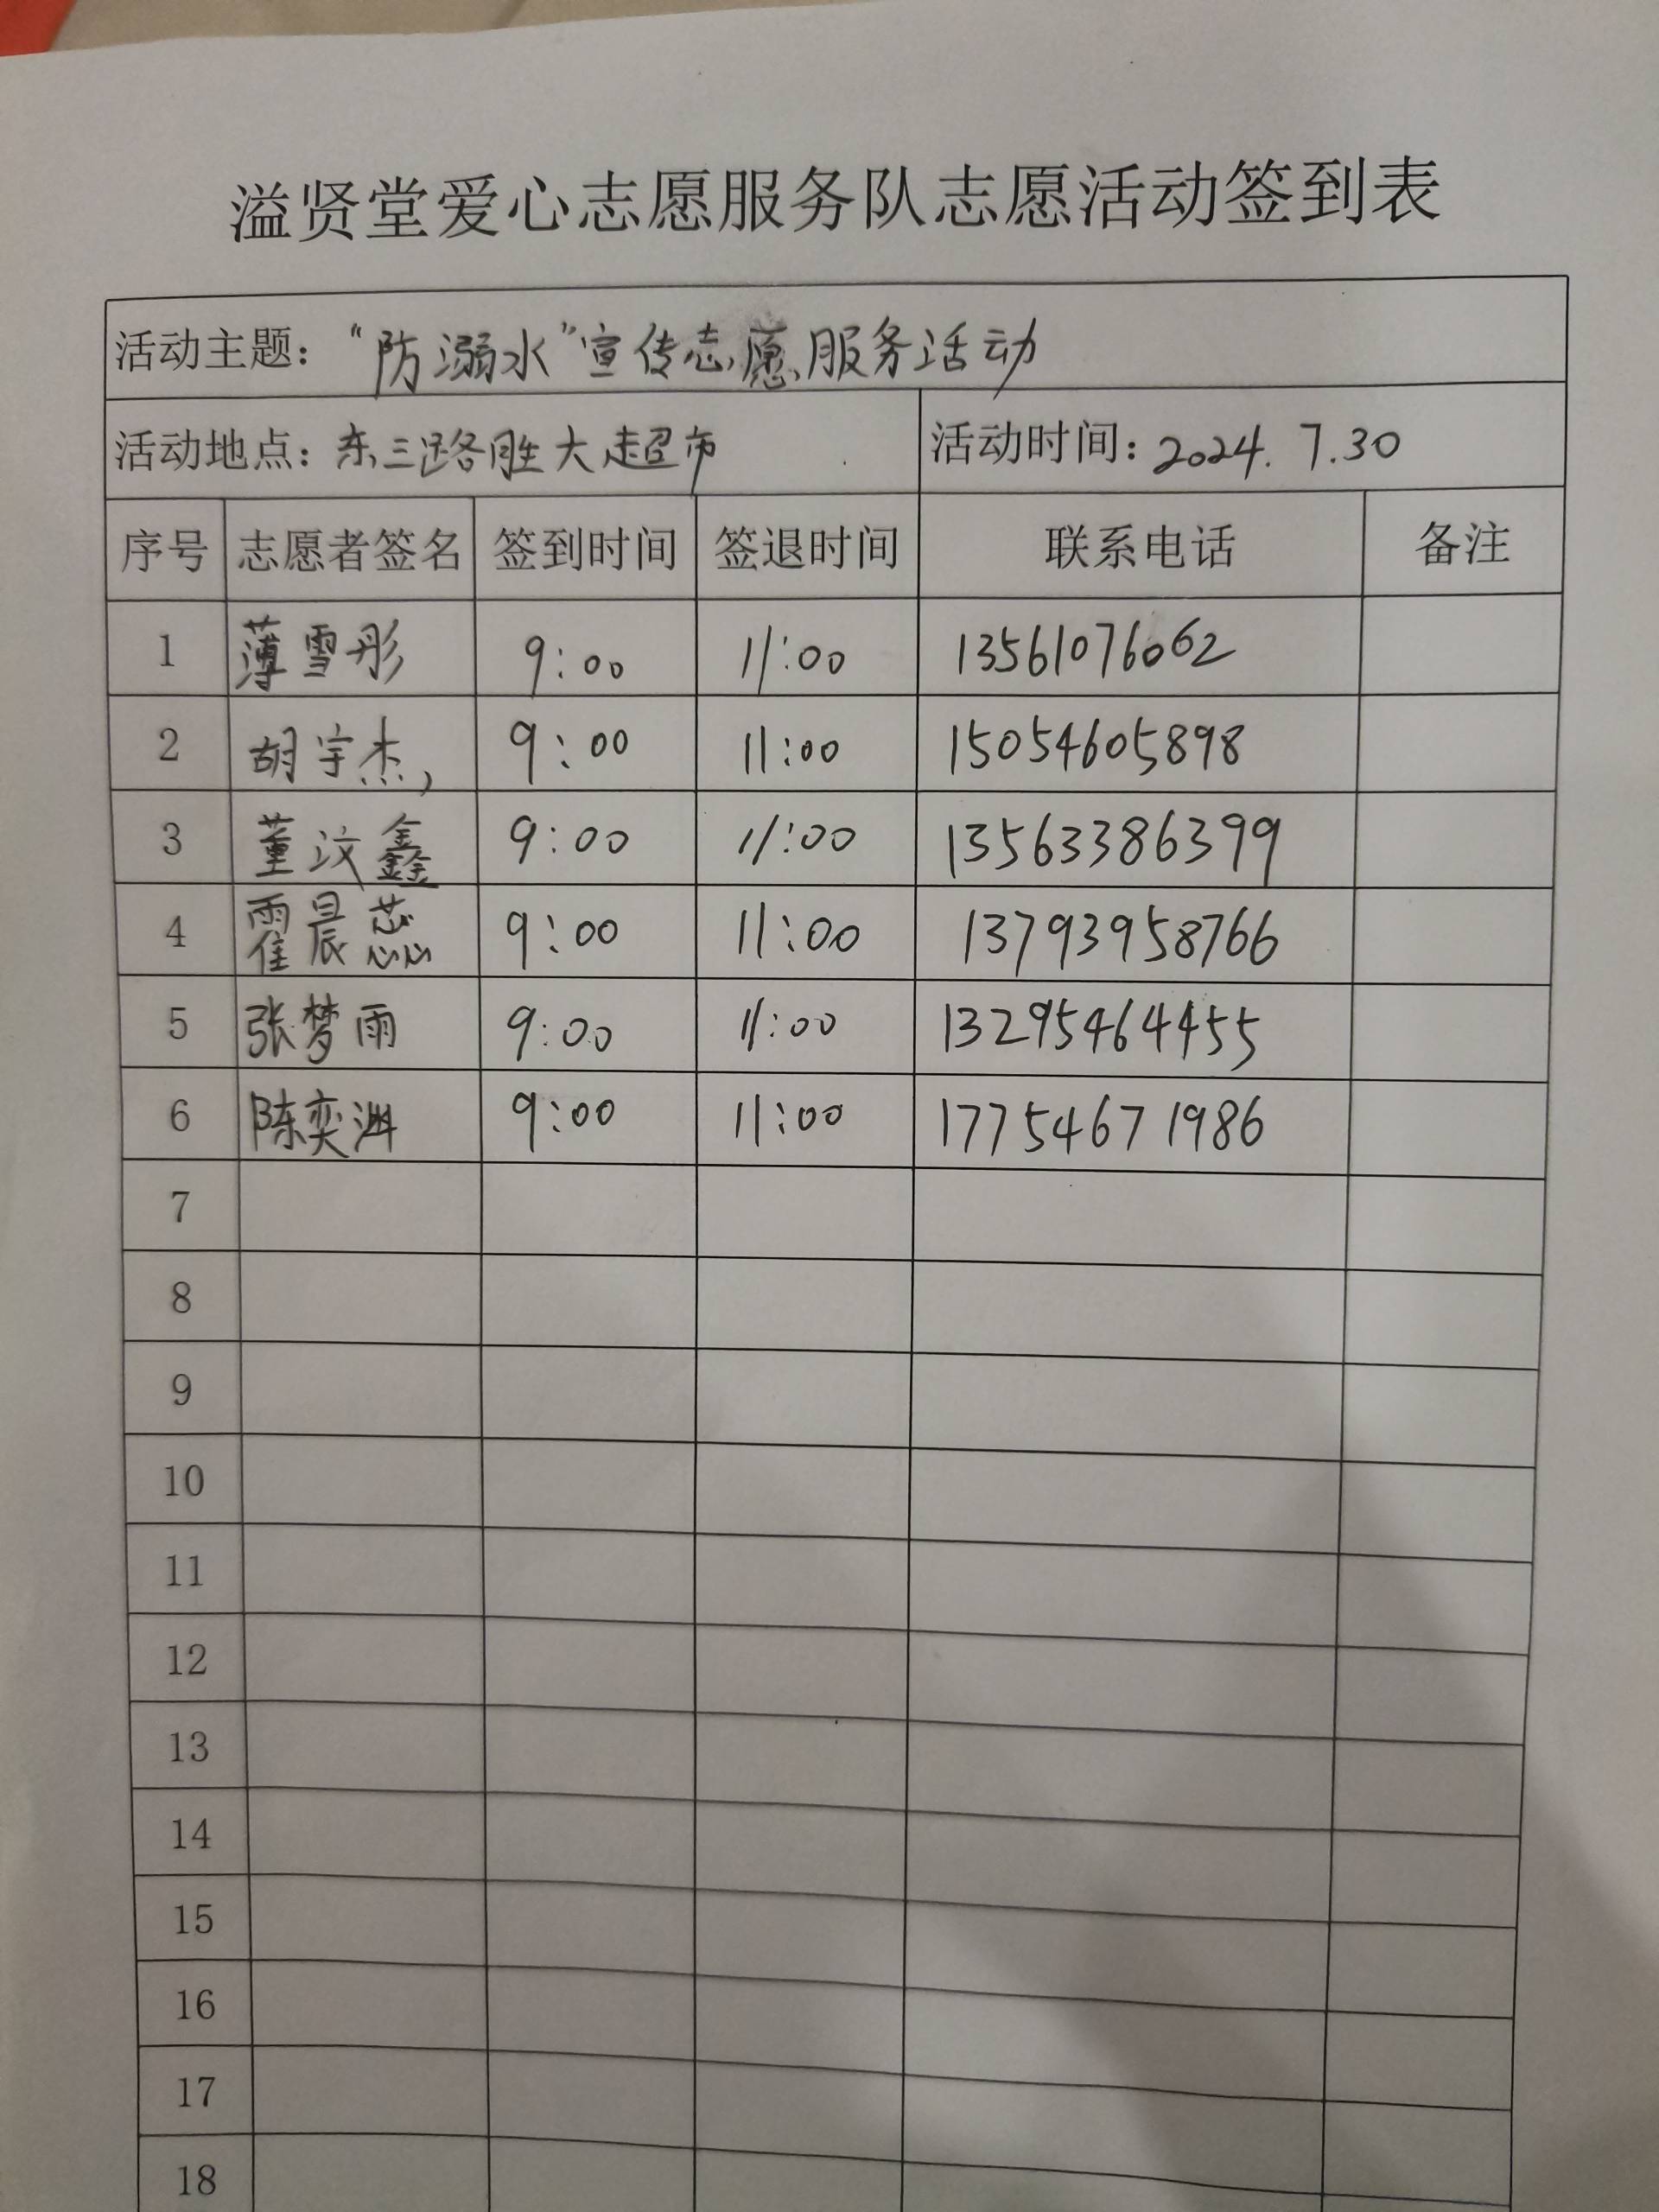 溢贤堂爱心志愿服务队志愿活动签到表
活动主题："防溺水"宣传志愿服务活动
活动地点：东三路胜大超市 活动时间：2024.7.30
序号 志愿者签名 签到时间 签退时间 联系电话 备注
1 薄雪彤 9:00 11:00 13561076062
2 胡宇杰, 9:00 11:00 15054605898
3 董汶鑫 9:00 11:00 13563386399
4 霍晨蕊 9:00 11:00 13793958766
5 张梦雨 9:00 11:00 13295464455
6 陈奕渊 9:00 11:00 17754671986
7
8
9
10
11
12
13
14
15
16
17
18